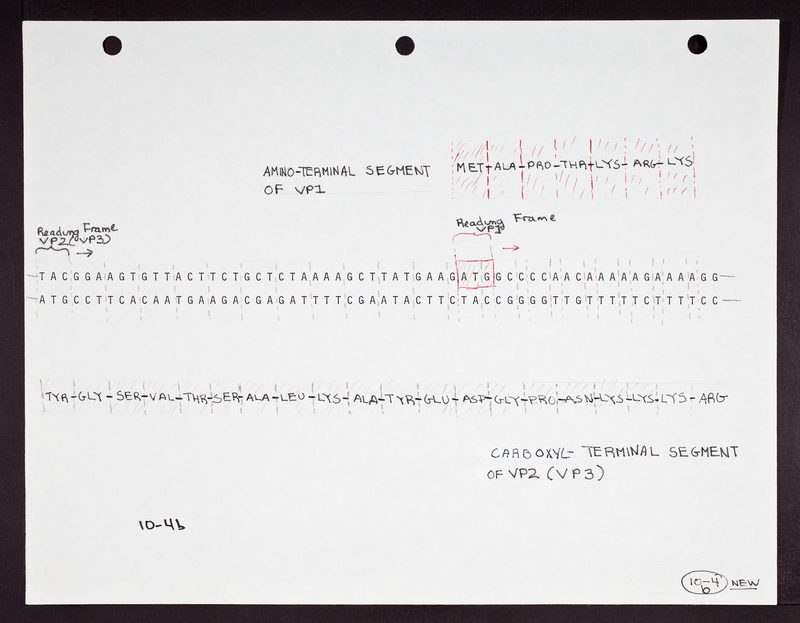 AMINO-TERMINAL SEGMENT
OF VP1
MET-ALA-PRO-THR-LYS-ARG-LYS
Readung Frame
VP2(VP3) →
Readung Frame
VP1 →
—TACGGAAGTGTTACTTCTGCTCTAAAAGCTTATGAAGATGGCCCCAACAAAAAGAAAAGG—
—ATGCCTTCACAATGAAGACGAGATTTTCGAATACTTCTACCGGGGTTGTTTTTCTTTTCC—
TYR-GLY-SER-VAL-THR-SER-ALA-LEU-LYS-ALA-TYR-GLU-ASP-GLY-PRO-ASN-LYS-LYS-LYS-ARG
CARBOXYL-TERMINAL SEGMENT
OF VP2 (VP3)
10-4b
10-4
b NEW